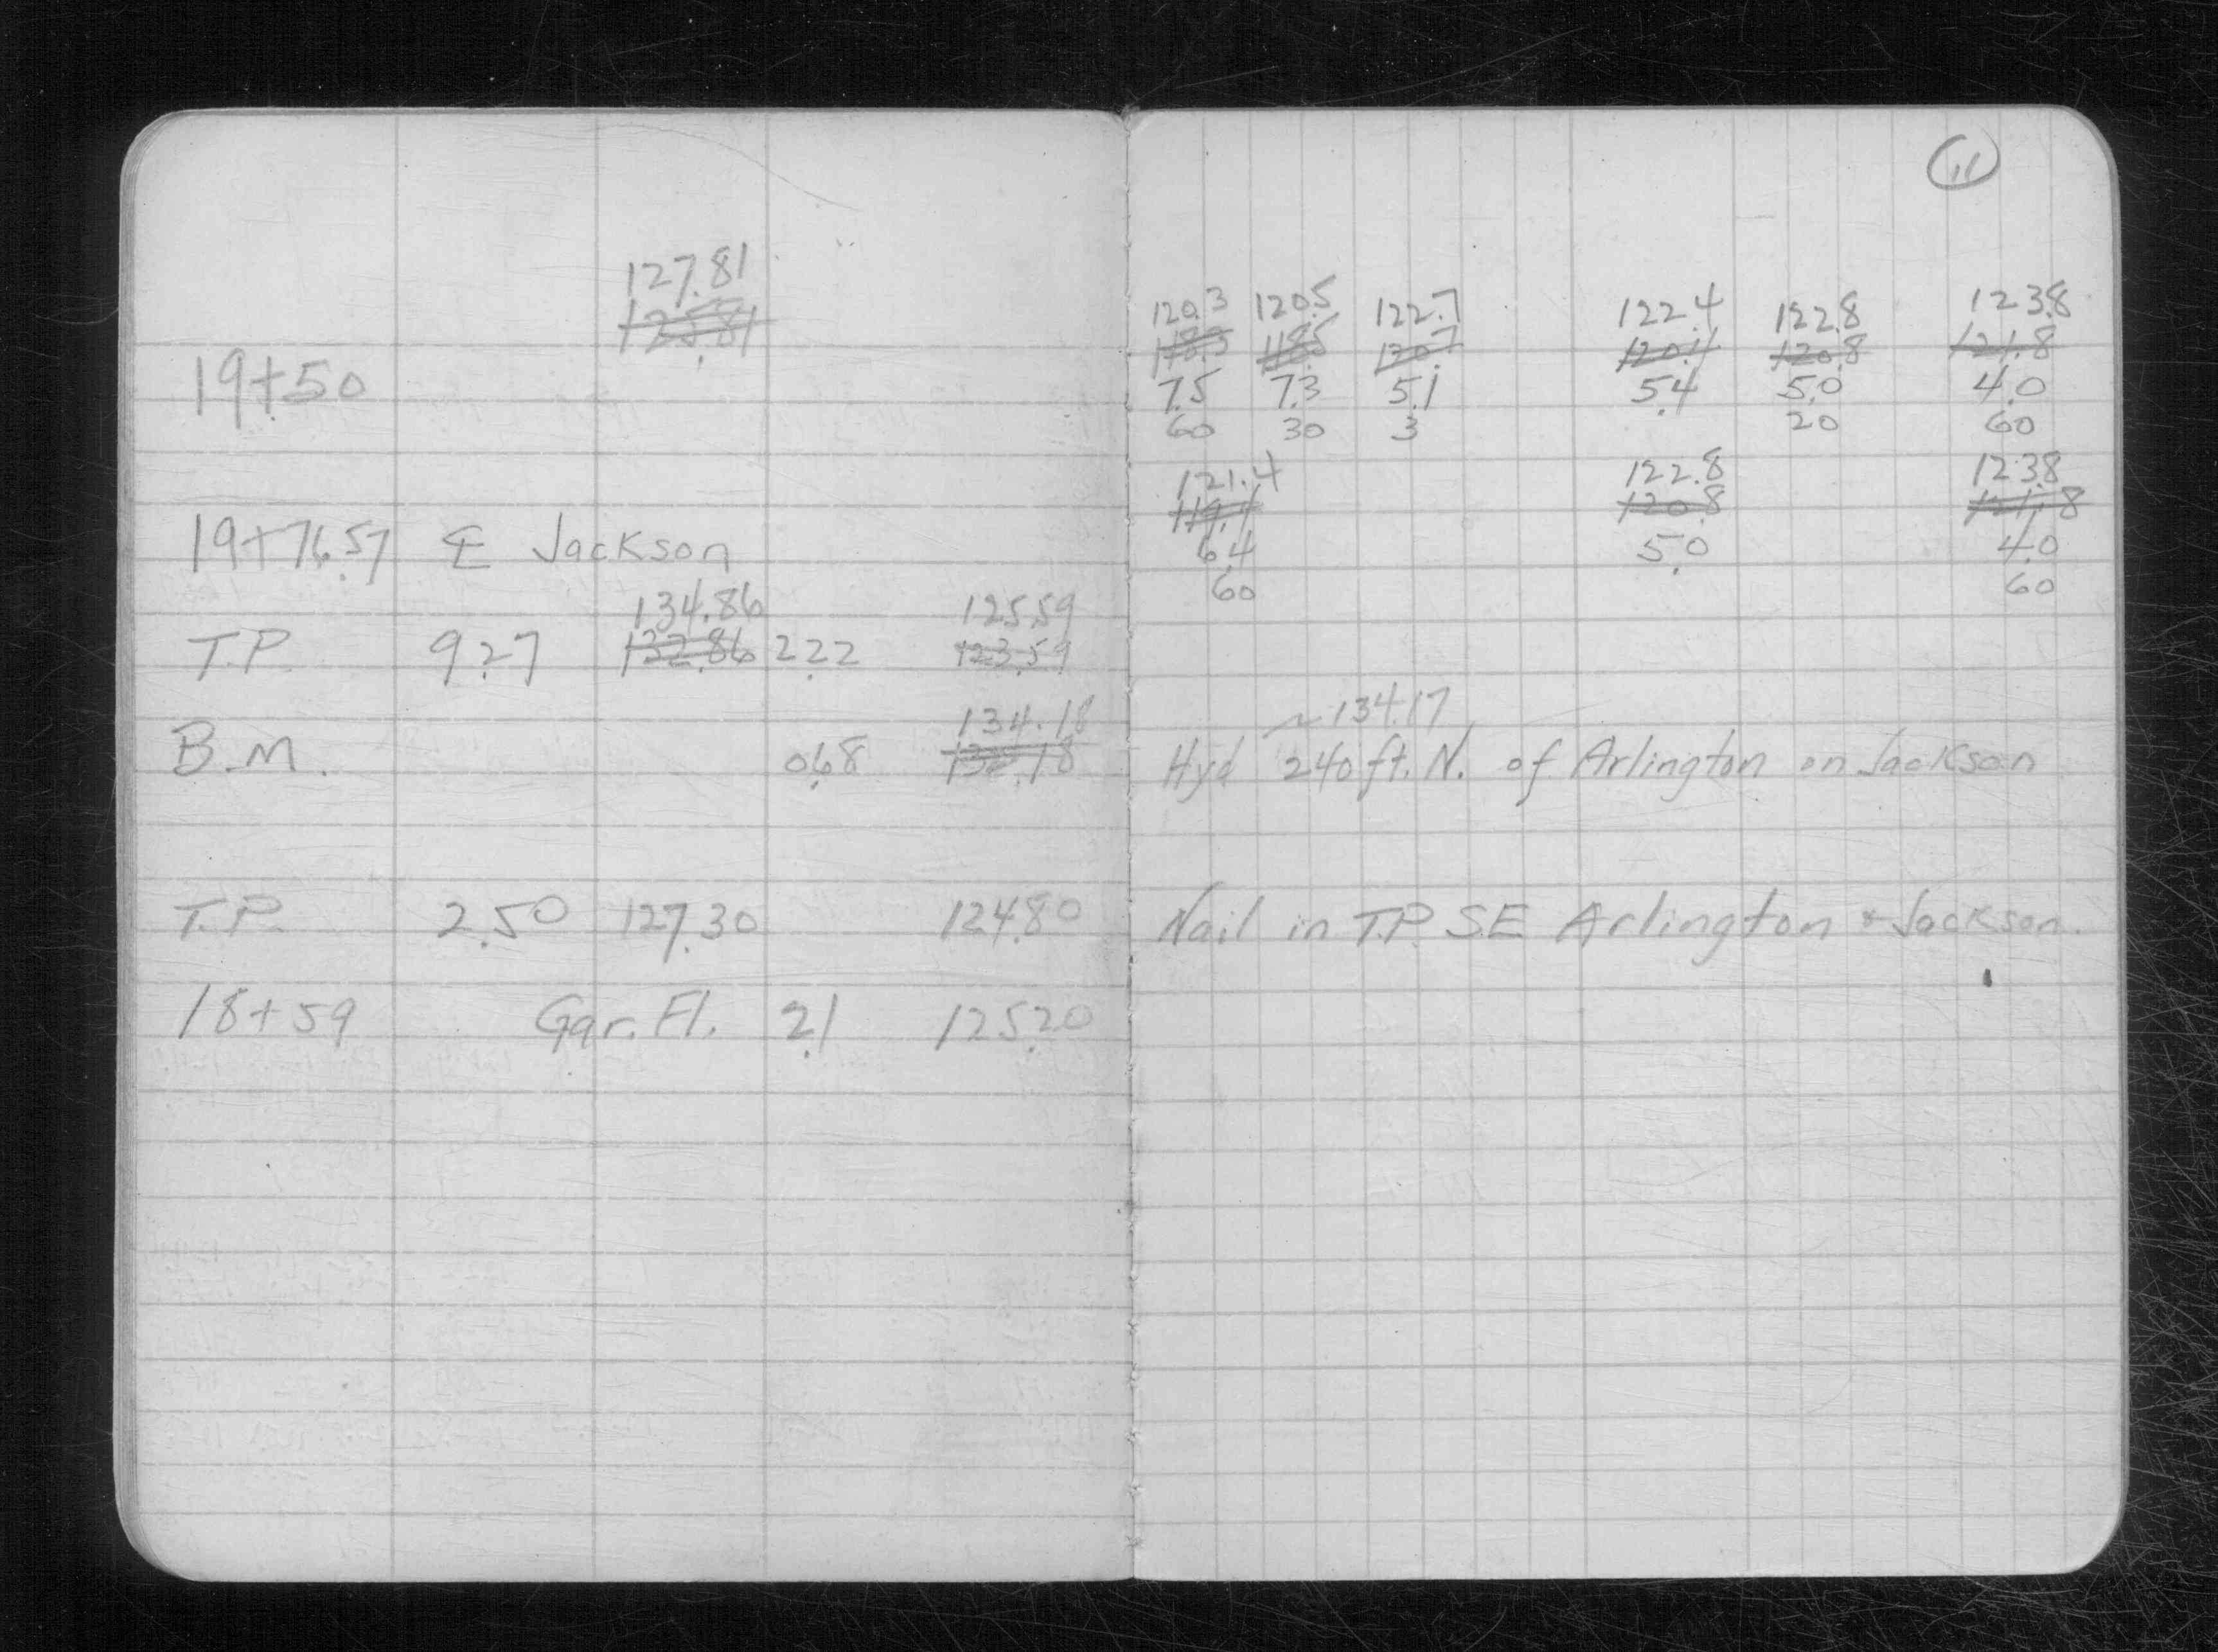 11
127.81
125.81
120.3 120.5 122.7 122.4 122.8 123.8
118.3 118.5 120.7 120.4 120.8 121.8
19+50 7.5 7.3 5.1 5.4 5.0 4.0
60 30 3 20 60
121.4 122.8 123.8
119.4 120.8 121.8
19+76.57 ℄ Jackson 6.4 5.0 4.0
60 60
134.86 125.59
T.P. 9.27 132.86 2.22 123.59
134.18 ~134.17
B.M. 0.68 132.18 Hyd 240 ft. N. of Arlington on Jackson
T.P. 2.50 127.30 124.80 Nail in T.P. S.E Arlington & Jackson.
18+59 Gar. Fl. 2.1 125.20